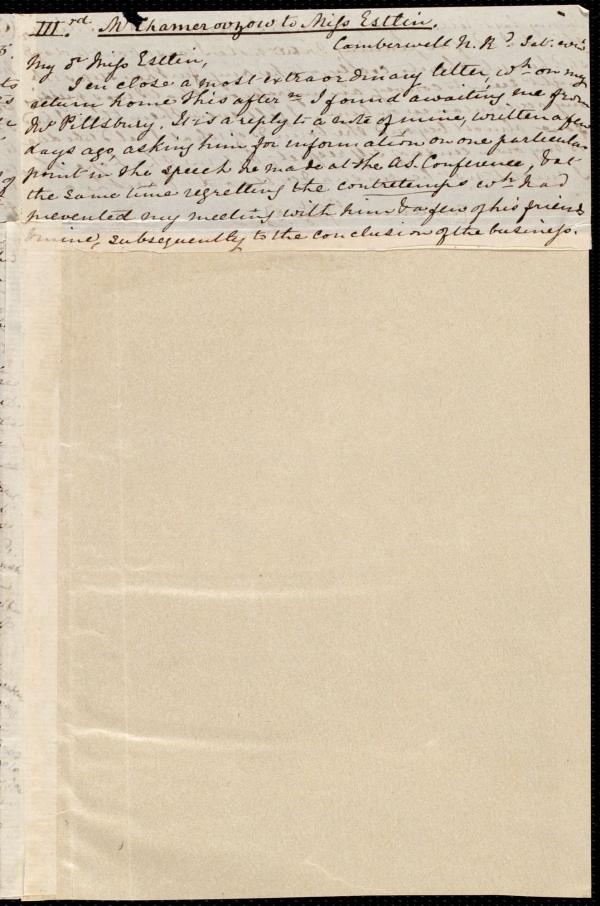 III.rd Mr Chamerovzow to Miss Estlin.
Camberwell N. Rd. Sat. eveng
My dr Miss Estlin,
I enclose a most extraordinary letter, wh. on my
return home this aftern I found awaiting me from
Mr Pillsbury. It is a reply to a note of mine, written a few
days ago, asking him for information on one particular
point in the speech he made at the A.S. Conference, & at
the same time regretting the contretemps wh. had
prevented my meeting with him & a few of his friends
& mine, subsequently to the conclusion of the business.